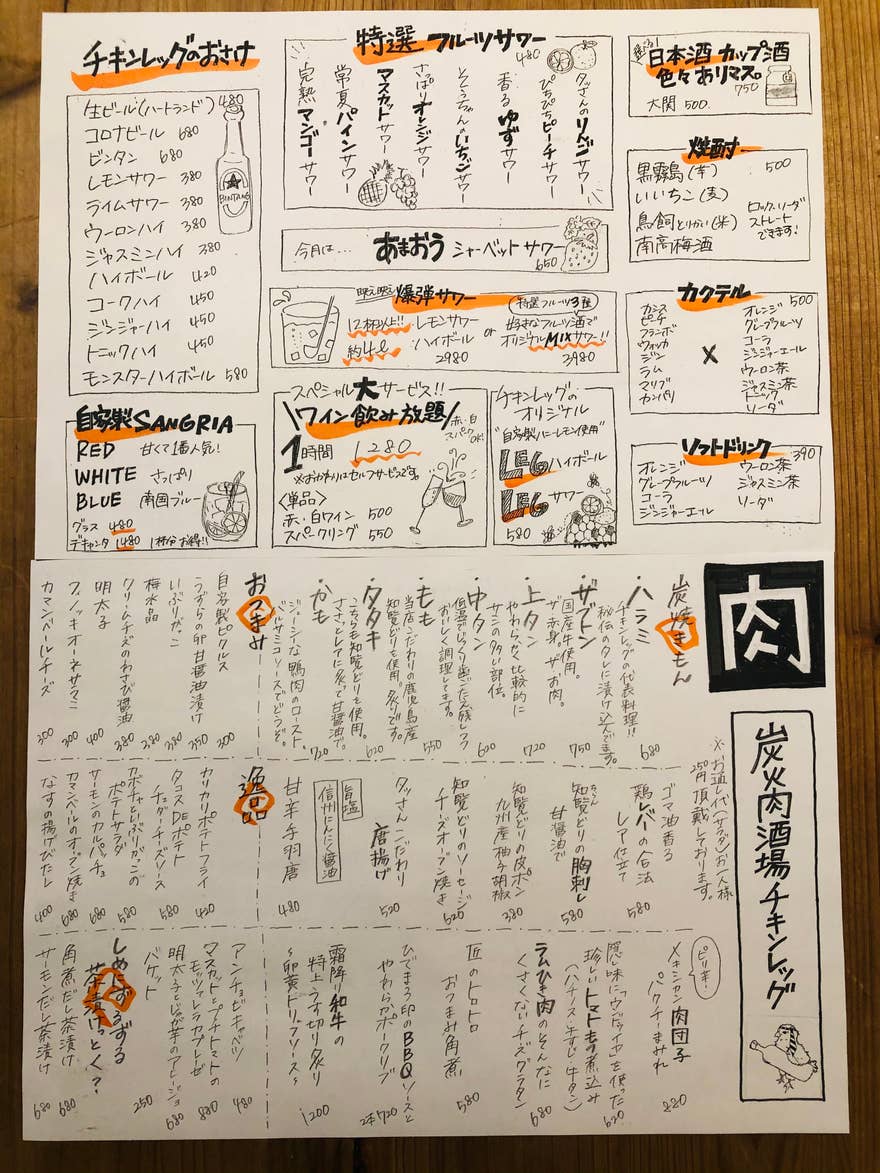 チキンレッグのおさけ
生ビール(ハートランド) 480
コロナビール 680
ビンタン 680
レモンサワー 380
ライムサワー 380
ウーロンハイ 380
ジャスミンハイ 380
ハイボール 420
コークハイ 450
ジンジャーハイ 450
トニックハイ 450
モンスターハイボール 580
BINTANG
特選フルーツサワー
480
タッさんのりんごサワー
ぴちぴちピーチサワー
香るゆずサワー
そとちゃんのいちごサワー
さっぱりオレンジサワー
マスカットサワー
常夏パインサワー
完熟マンゴーサワー
日本酒 カップ酒
色々ありマス。
750
大関 500
焼酎
黒霧島(芋) 500
いいちこ(麦)
鳥飼とりかい(米)
南高梅酒
ロック・ソーダ
ストレート
できます!
今月は… あまおう シャーベットサワー
650
映え映え 爆弾サワー
12杯以上!! レモンサワー
約4L ハイボール
2980
or
特選フルーツ3種
好きなフルーツ酒で
オリジナルMIXサワー!!
3980
カクテル
500
カシス
ピーチ
フランボ
ウォッカ
ジン
ラム
マリブ
カンパリ
×
オレンジ
グレープフルーツ
コーラ
ジンジャーエール
ウーロン茶
ジャスミン茶
トニック
ソーダ
自家製SANGRIA
RED 甘くて1番人気!
WHITE さっぱり
BLUE 南国ブルー
グラス 480
デキャンタ 1480 1杯分お得!!
スペシャル大サービス!!
ワイン飲み放題
赤・白
スパークOK!
1時間 1280
※おかわりはセルフサービスです。
<単品>
赤・白ワイン 500
スパークリング 550
チキンレッグの
オリジナル
"自家製ハニーレモン使用"
LEGハイボール
LEGサワー
580
ソフトドリンク
390
オレンジ
グレープフルーツ
コーラ
ジンジャーエール
ウーロン茶
ジャスミン茶
ソーダ
肉
炭火肉酒場チキンレッグ
※お通し代(サラダ)お一人様
250円頂戴しております。
炭焼きもん
・ハラミ
チキンレッグの代表料理!!
秘伝のタレに漬け込んでます。
680
・ザブトン
国産牛使用。
ザ・赤身。ザ・お肉。
750
・上タン
やわらかく比較的に
サシの多い部位。
720
・中タン
おいしく調理してます。
620
・もも
当店こだわりの鹿児島産
知覧どりを使用。炙りです。
550
・タタキ
こちらも知覧どりを使用。
ささっとレアに炙って甘醤油で。
620
・かも
ジューシーな鴨肉のロースト。
バルサミコソースでどうぞ。
720
おつまみ
自家製ピクルス 300
うずらの卵甘醤油漬け 350
いぶりがっこ 380
梅水晶 380
クリームチーズのわさび醤油 380
明太子 400
フィノッキオーネサラミ 300
カマンベールチーズ 300
ゴマ油香る
鶏レバーの合法
レア仕立て
580
知覧どりの胸刺し
甘醤油で
580
知覧どりの皮ポン
九州産柚子胡椒
380
知覧どりのソーセージ
チーズオーブン焼き
620
タッさんこだわり
唐揚げ
520
旨塩
信州にんにく醤油
甘辛手羽唐
480
逸品
カリカリポテトフライ 420
タコスDEポテト
チェダーチーズソース
580
カボチャといぶりがっこの
ポテトサラダ
580
サーモンのカルパッチョ 680
カマンベールのオーブン焼き 680
なすの揚げびたし 400
ピリ辛!
メキシカン肉団子
パクチーまみれ
880
隠し味に「ウンドゥイヤ」を使った
珍しいトマトもつ煮込み
(ハチノス・牛すじ・牛タン)
620
ラムひき肉のそんなに
くさくないチーズグラタン
680
匠のトロトロ
おつまみ角煮
580
ひでまる印のBBQソースと
やわらかポークリブ
2本720
霜降り和牛の
特上うす切り炙り
～卵黄トリュフソース～
1200
アンチョビキャベツ 480
マスカットとプチトマトの
モッツァレラカプレーゼ
880
明太子とじゃが芋のアヒージョ 680
バケット 250
しめにずるずる
茶漬けっとく?
角煮だし茶漬け 680
サーモンだし茶漬け 680